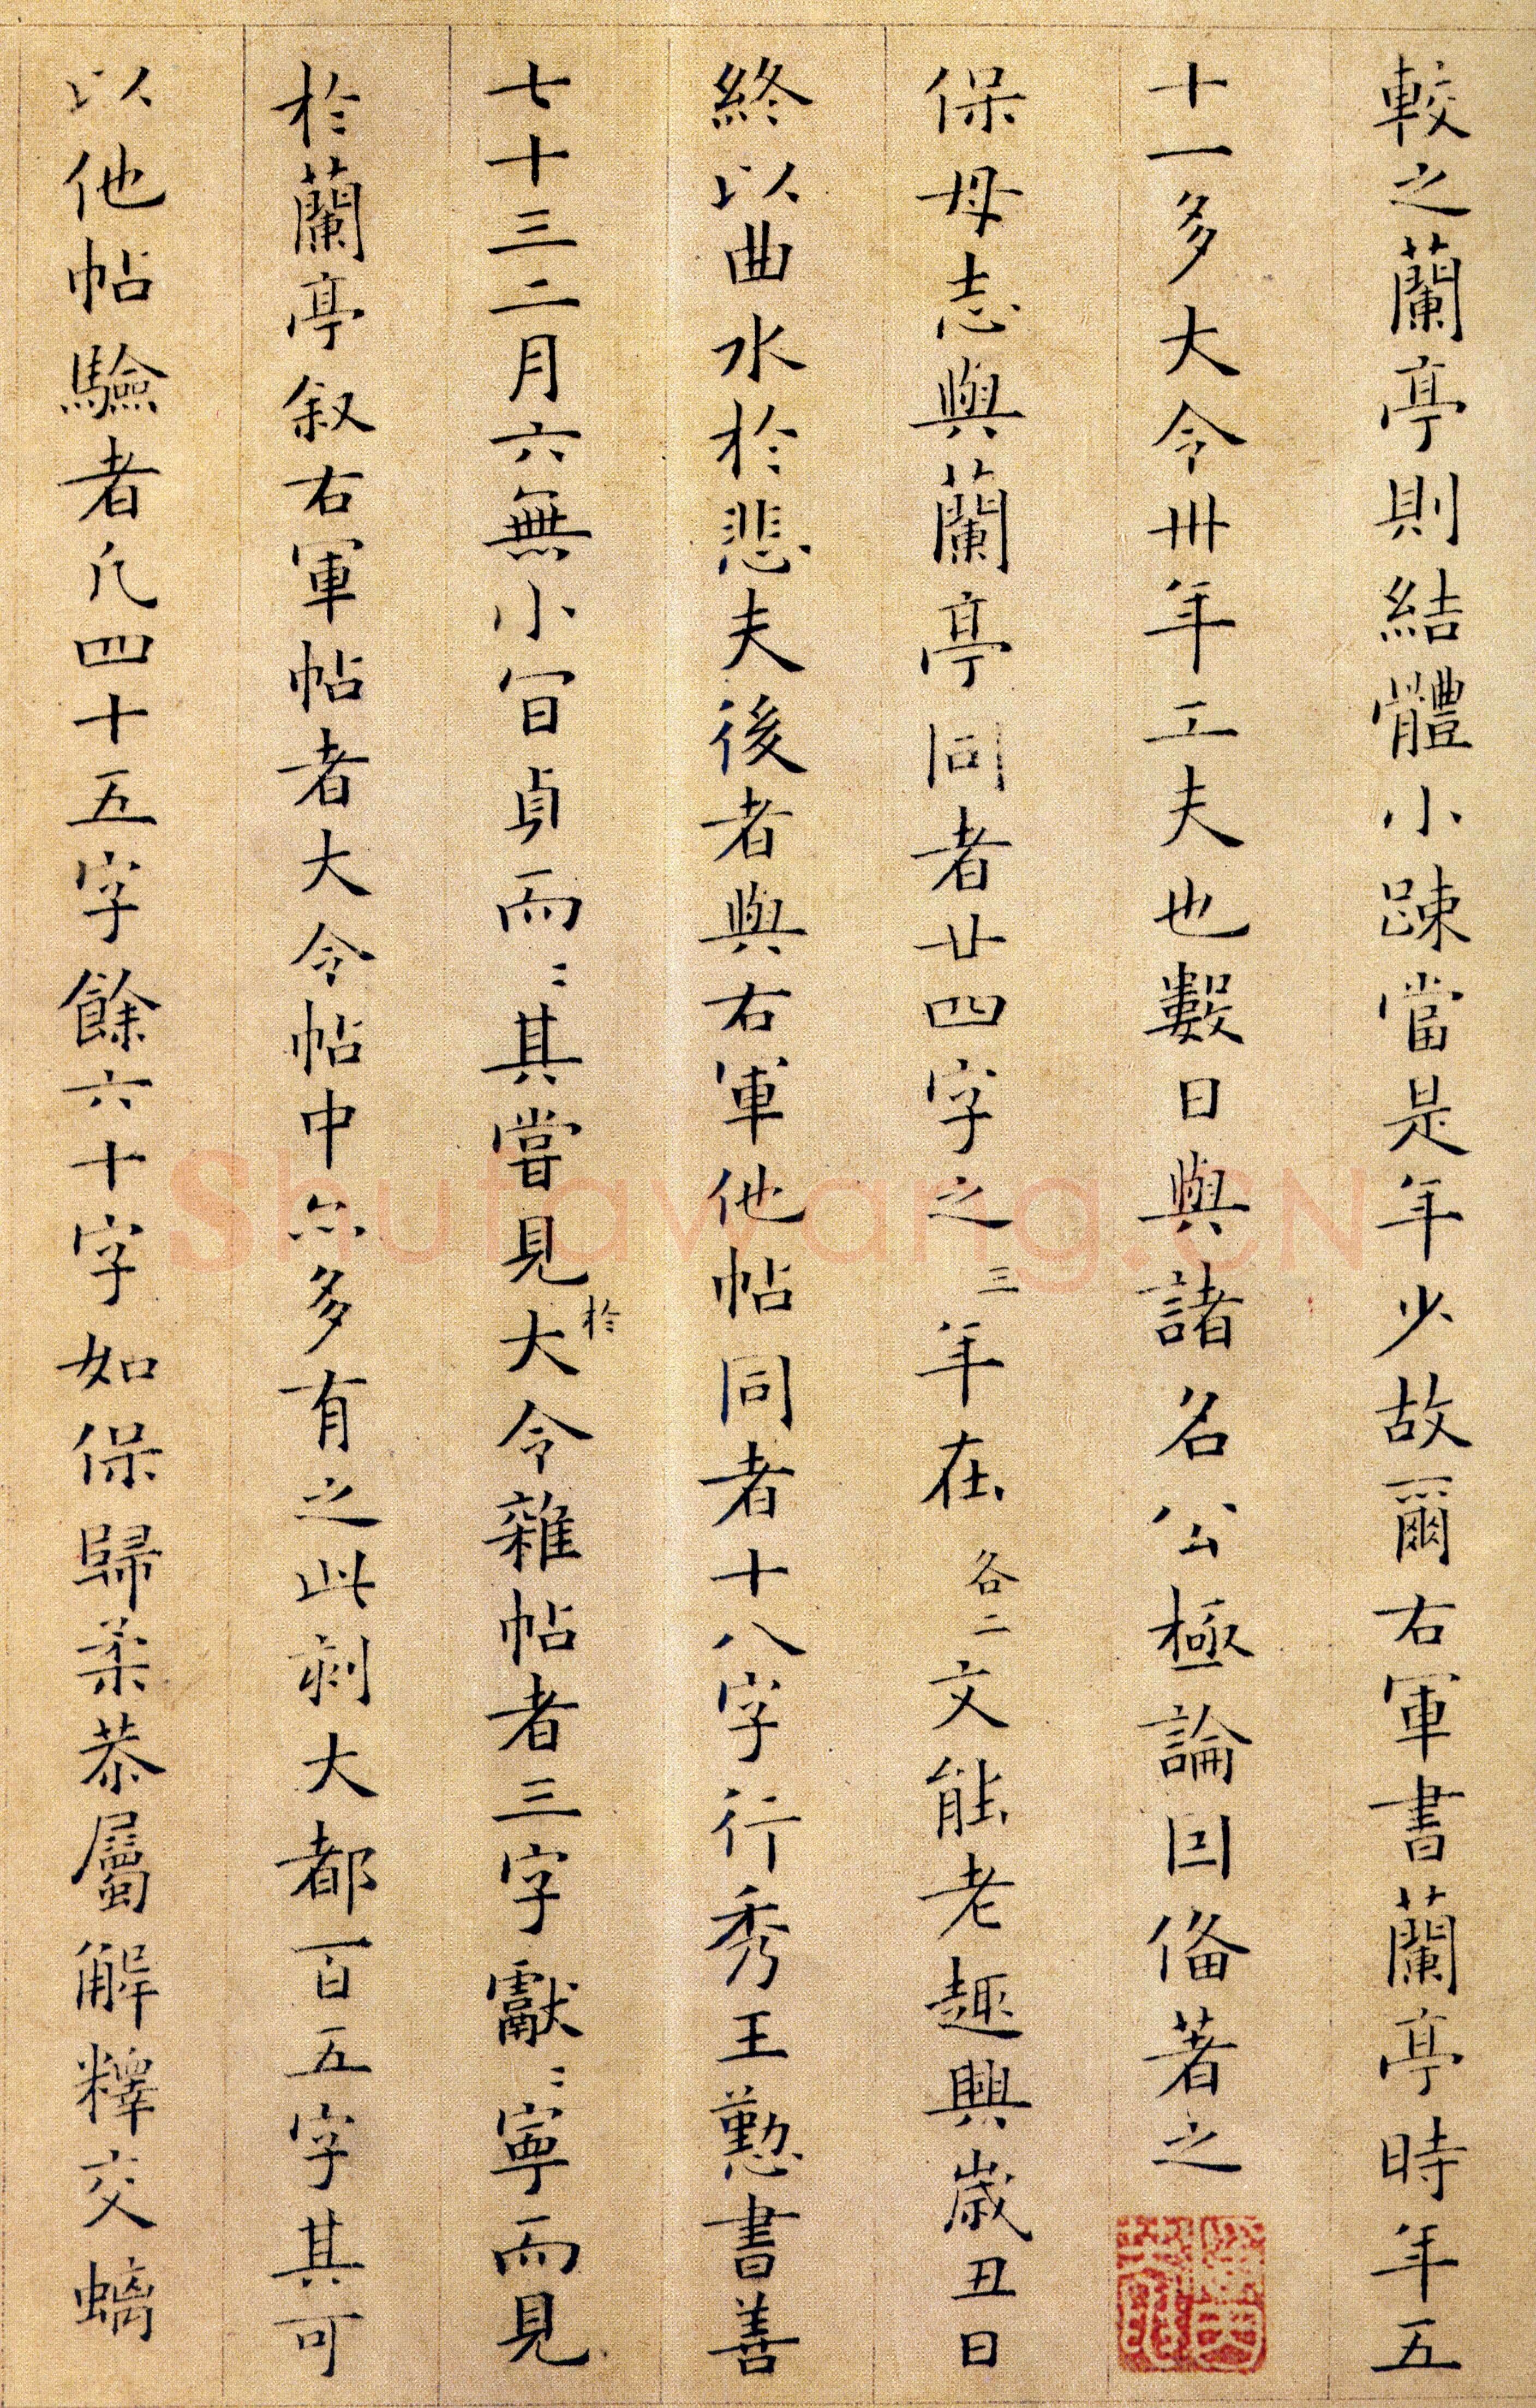 較之蘭亭則結體小踈當是年少故爾右軍書蘭亭時年五
十一多大令卅年工夫也數日與諸名公極論因俻著之
保母志與蘭亭同者廿四字之三年在各二文能老趣興歲丑日
終以曲水於悲夫後者與右軍他帖同者十八字行秀王懃書善
七十三二月六無小冝貞而〻其嘗見於大令雜帖者三字獻〻寧而見
於蘭亭叙右軍帖者大令帖中亦多有之此刻大都百五字其可
以他帖驗者凡四十五字餘六十字如保歸柔恭屬解釋交螭
Shufawang.CN